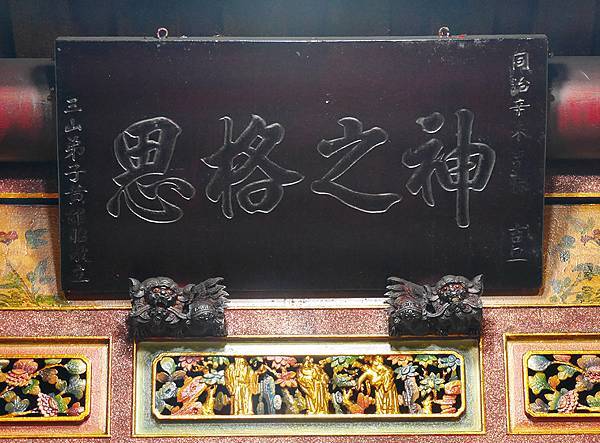 同治辛未 吉立
神之格思
三山弟子黃 敬立